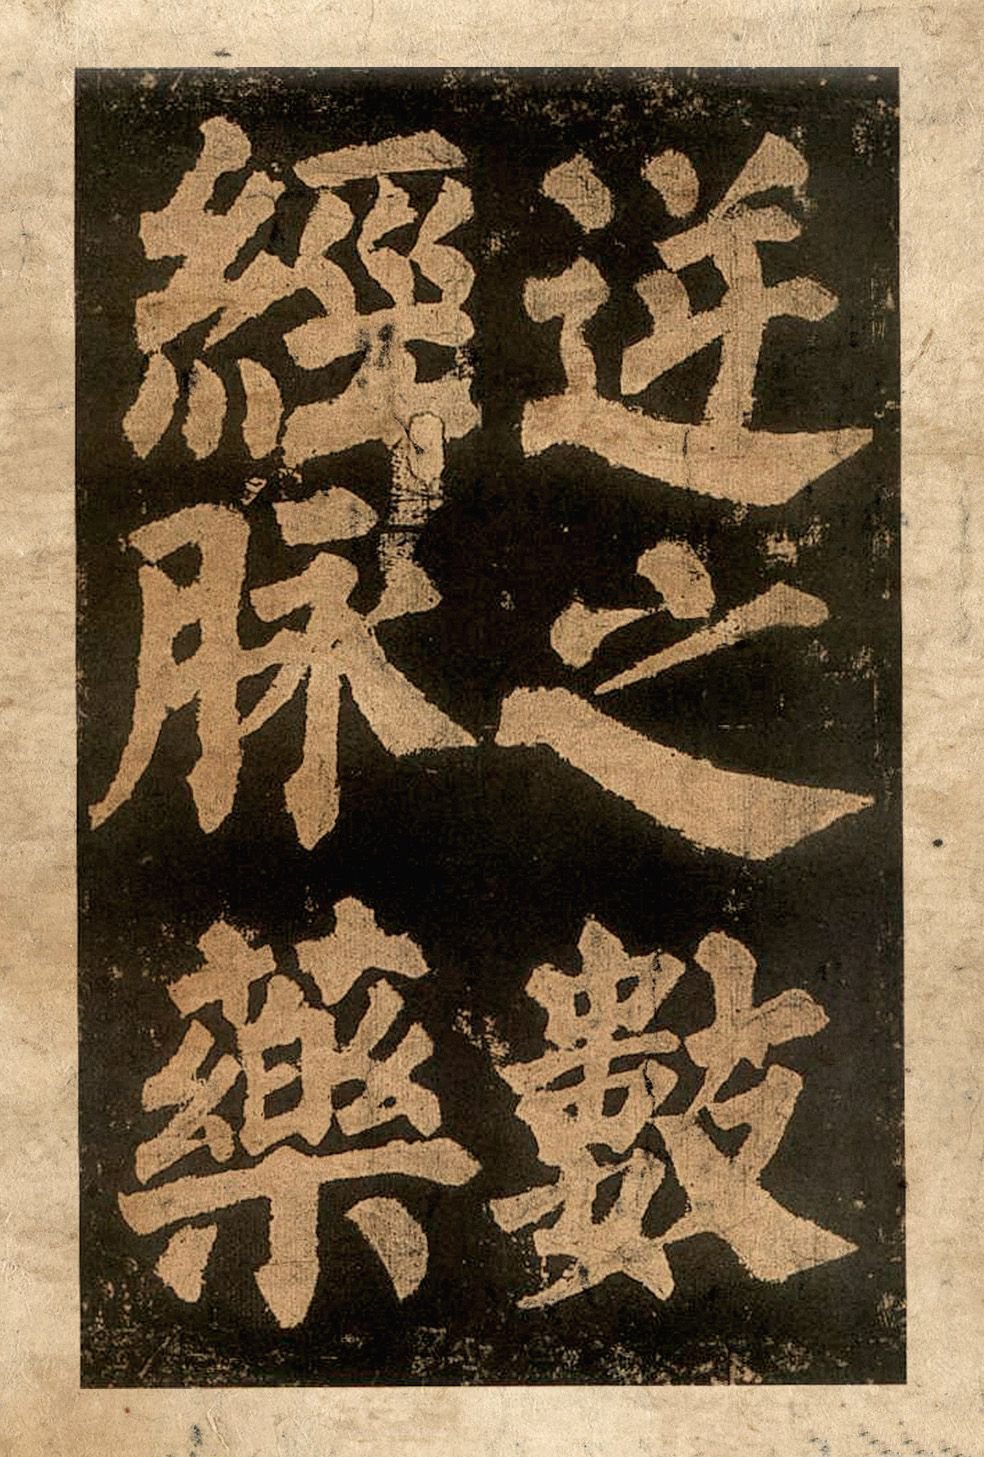 近之數
經脉藥